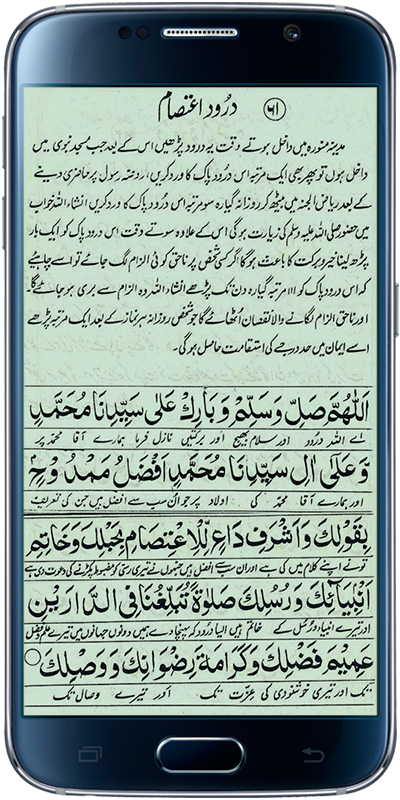 درود اعتصام ﴿٦١﴾
مدینہ منورہ میں داخل ہوتے وقت یہ درود پڑھیں اس کے بعد جب مسجد نبوی میں
داخل ہوں تو پھر بھی ایک مرتبہ اس درود پاک کا ورد کریں، روضہ رسول پر حاضری دینے
کے بعد ریاض الجنہ میں بیٹھ کر روزانہ گیارہ سو مرتبہ اس درود پاک کا ورد کریں انشاء اللہ خواب
میں حضور صلی اللہ علیہ وسلم کی زیارت ہوگی اس کے علاوہ سوتے وقت اس درود پاک کو ایک بار
پڑھ لینا خیر و برکت کا باعث ہوگا اگر کسی شخص پر ناحق کوئی الزام لگ جائے تو اسے چاہیئے
کہ اس درود پاک کو ۱۱۱۱ مرتبہ گیارہ دن تک پڑھے انشاء اللہ وہ الزام سے بری ہو جائے گا۔
اور ناحق الزام لگانے والا نقصان اٹھائے گا جو شخص روزانہ ہر نماز کے بعد ایک مرتبہ پڑھے
اسے ایمان میں حد درجے کی استقامت حاصل ہوگی۔
اَللّٰهُمَّ صَلِّ وَسَلِّمْ وَبَارِكْ عَلٰى سَيِّدِنَا مُحَمَّدٍ
اے اللہ درود اور سلام بھیج اور برکتیں نازل فرما ہمارے آقا محمد پر
وَّعَلٰى اٰلِ سَيِّدِنَا مُحَمَّدٍ اَفْضَلُ مَمْدُوْحٍ
اور ہمارے آقا محمد کی اولاد پر جو ان سب سے افضل ہیں جن کی تعریف
بِقَوْلِكَ وَاَشْرَفِ دَاعٍ لِّلْاِعْتِصَامِ بِحَبْلِكَ وَخَاتِمِ
تو نے اپنے کلام میں کی ہے اور ان سب سے افضل ہیں جنہوں نے تیری رسی کو مضبوط پکڑنے کی دعوت دی ہے
اَنْبِيَآئِكَ وَرُسُلِكَ صَلٰوةً تُبَلِّغُنَا فِى الدَّارَيْنِ
اور تیرے انبیاء و رسل کے خاتم ہیں ایسا درود کہ پہنچا دے ہمیں دونوں جہانوں میں تیرے فضل
عَمِيْمَ فَضْلِكَ وَكَرَامَةَ رِضْوَانِكَ وَوَصْلِكَ
تک اور تیری خوشنودی کی عزت تک اور تیرے وصال تک